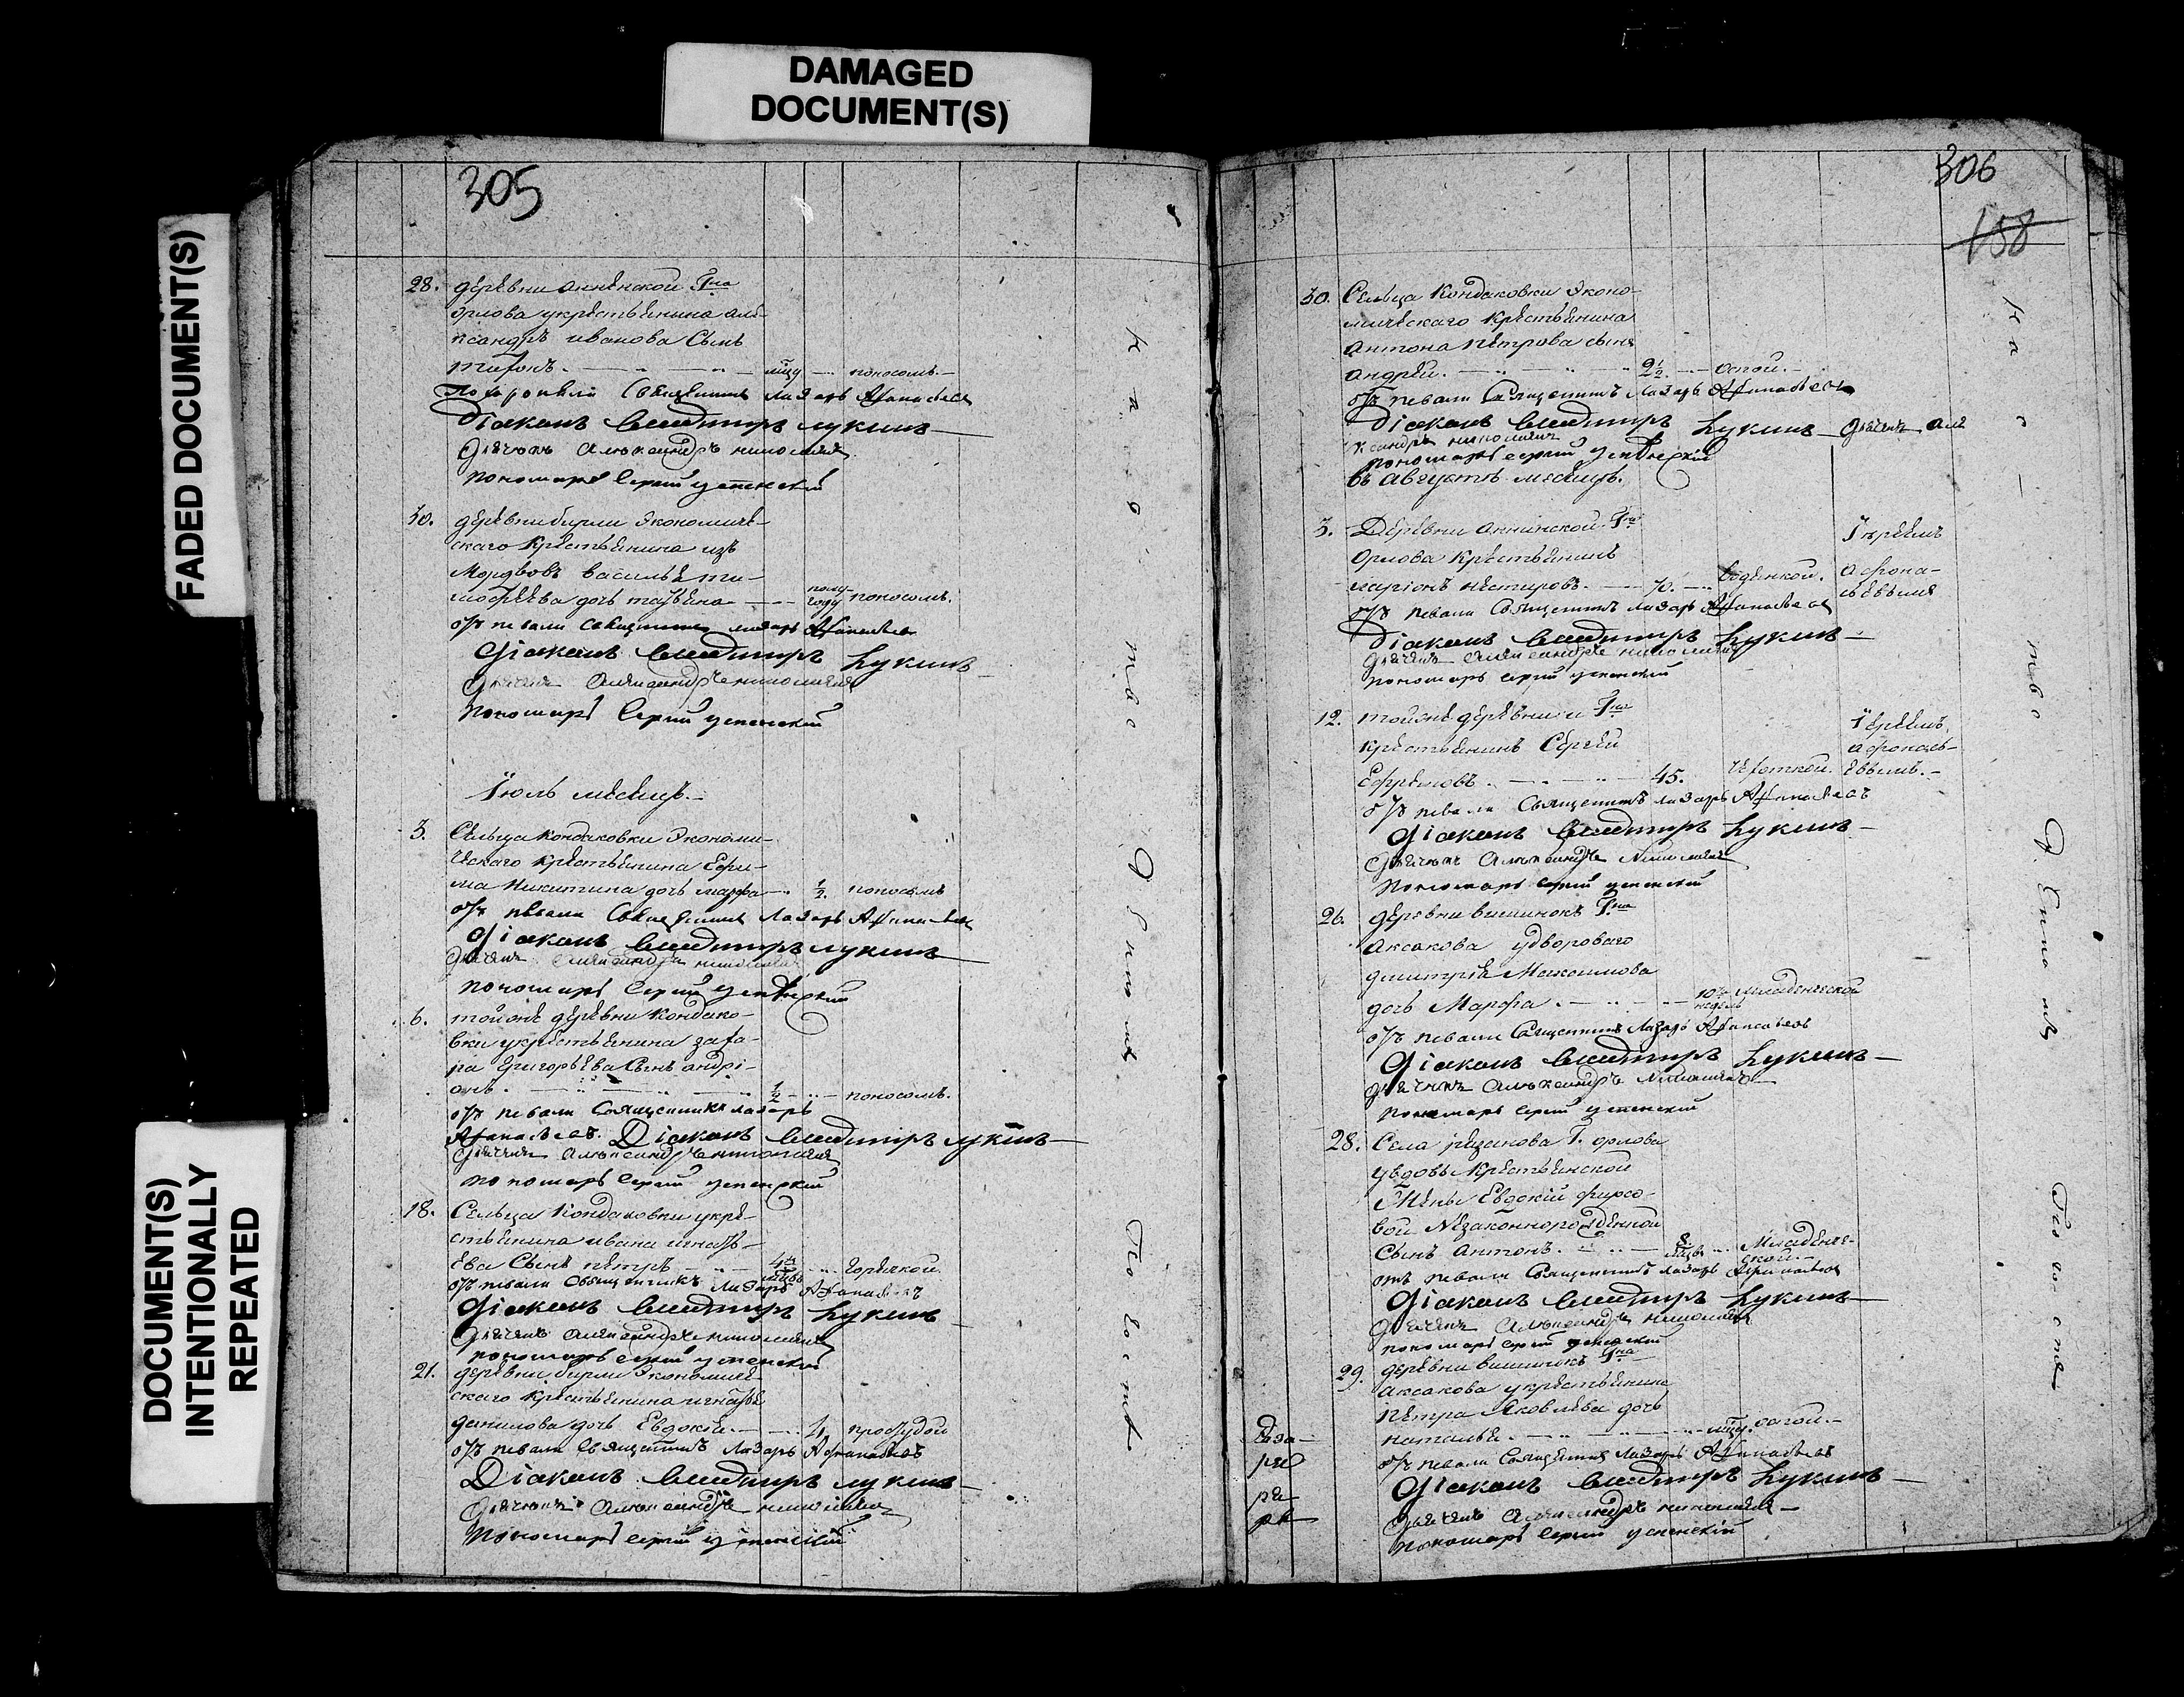 DAMAGED
DOCUMENT(S)
FADED DOCUMENT(S)
DOCUMENT(S)
INTENTIONALLY
REPEATED
305
28. деревни аннинской Гна
орлова укрестьянина але-
ксандръ иванова Сынъ
поносомъ
Похоронили Священникъ Лазарь Афанасьевъ
Діаконъ Владимиръ лукинъ
Дьячокъ Александръ николаевъ
пономарь Сергий успенский
30. деревни бирли Экономиче-
скаго крестьянина изъ
Мордвовъ василья ти-
мофеева дочь татьяна полу-
году поносомъ.
отпевали священникъ лазарь Афанасьевъ
Діаконъ Владимиръ Лукинъ
Дьячокъ Александръ николаевъ
пономарь Сергий успенский
Июль месецъ.
3. Сельца кондаковки Экономи-
ческаго крестьянина Ефи-
ма Никитина дочь марфа 1/2. поносомъ
отпевали священникъ Лазарь Афанасьевъ
Діаконъ Владимиръ лукинъ
Дьячокъ Александръ николаевъ
пономарь Сергий успенский
6. тойоже деревни Кондако-
вки укрестьянина заха-
ра Григорьева Сынъ андрі-
анъ. 1/2 поносомъ.
отпевали Священникъ лазарь
Афанасьевъ. Діаконъ Владимиръ лукинъ
Дьячокъ Александръ николаевъ
пономарь Сергий успенский
18. Сельца кондаковки укре-
стьянина ивана игнать-
ева Сынъ петръ горячкой
отпевали Священникъ Лазарь Афанасьевъ
Діаконъ Владимиръ Лукинъ
Дьячокъ Александръ николаевъ
пономарь Сергий успенский
21. деревни бирли Экономиче-
скаго крестьянина игнатья
данилова дочь Евдокия. 4 простудой
отпевали Священникъ Лазарь Афанасьевъ
Діаконъ Владимиръ лукинъ
Дьячокъ Александръ николаевъ
пономарь Сергий успенский
306
158
30. Сельца Кондаковки Эконо-
мическаго Крестьянина
антона петрова сынъ
андрей. 2 1/2. оспой.
отпевали Священникъ Лазарь Афанасьевъ
Діаконъ Владимиръ Лукинъ Дьячокъ Але
ксандръ николаевъ
пономарь Сергий успенский
въ Августе месяце.
3. Деревни аннинской Гна
Орлова крестьянинъ
ларіонъ нестеровъ. 70. водянкой.
Іереемъ
афона-
сьевымъ
отпевали Священникъ Лазарь Афанасьевъ
Діаконъ Владимиръ Лукинъ
Дьячокъ Александръ николаевъ
пономарь Сергий успенский
12. тойоже деревни и Гна
крестьянинъ Сергей
Ефремовъ. 45. чехоткой.
Іереемъ
афонась-
евымъ.
отпевали Священникъ лазарь Афанасьевъ
Діаконъ Владимиръ Лукинъ
Дьячокъ Александръ Николаевъ
пономарь Сергий успенский
26. деревни вишинокъ Гна
аксакова удвороваго
дмитрія Максимова
дочь Марфа. 10ти недель младенческой
отпевали Священникъ Лазарь Афанасьевъ
Діаконъ Владимиръ Лукинъ
Дьячокъ Александръ Николаевъ
пономарь Сергий успенский
28. Села рязанова Г. орлова
увдовы крестьянской
Жены Евдокіи фирсо-
вой Незаконнорожденной
Сынъ антонъ. 8. Младенче-
ской.
отпевали Священникъ лазарь Афанасьевъ
Діаконъ Владимиръ Лукинъ
Дьячокъ Александръ николаевъ
пономарь Сергий успенский
29. деревни вишинокъ Гна
аксакова укрестьянина
петра Яковлева дочь
наталья.
отпевали Священникъ Лазарь Афанасьевъ
Діаконъ Владимиръ Лукинъ
Дьячокъ Александръ николаевъ
пономарь Сергий успенскій